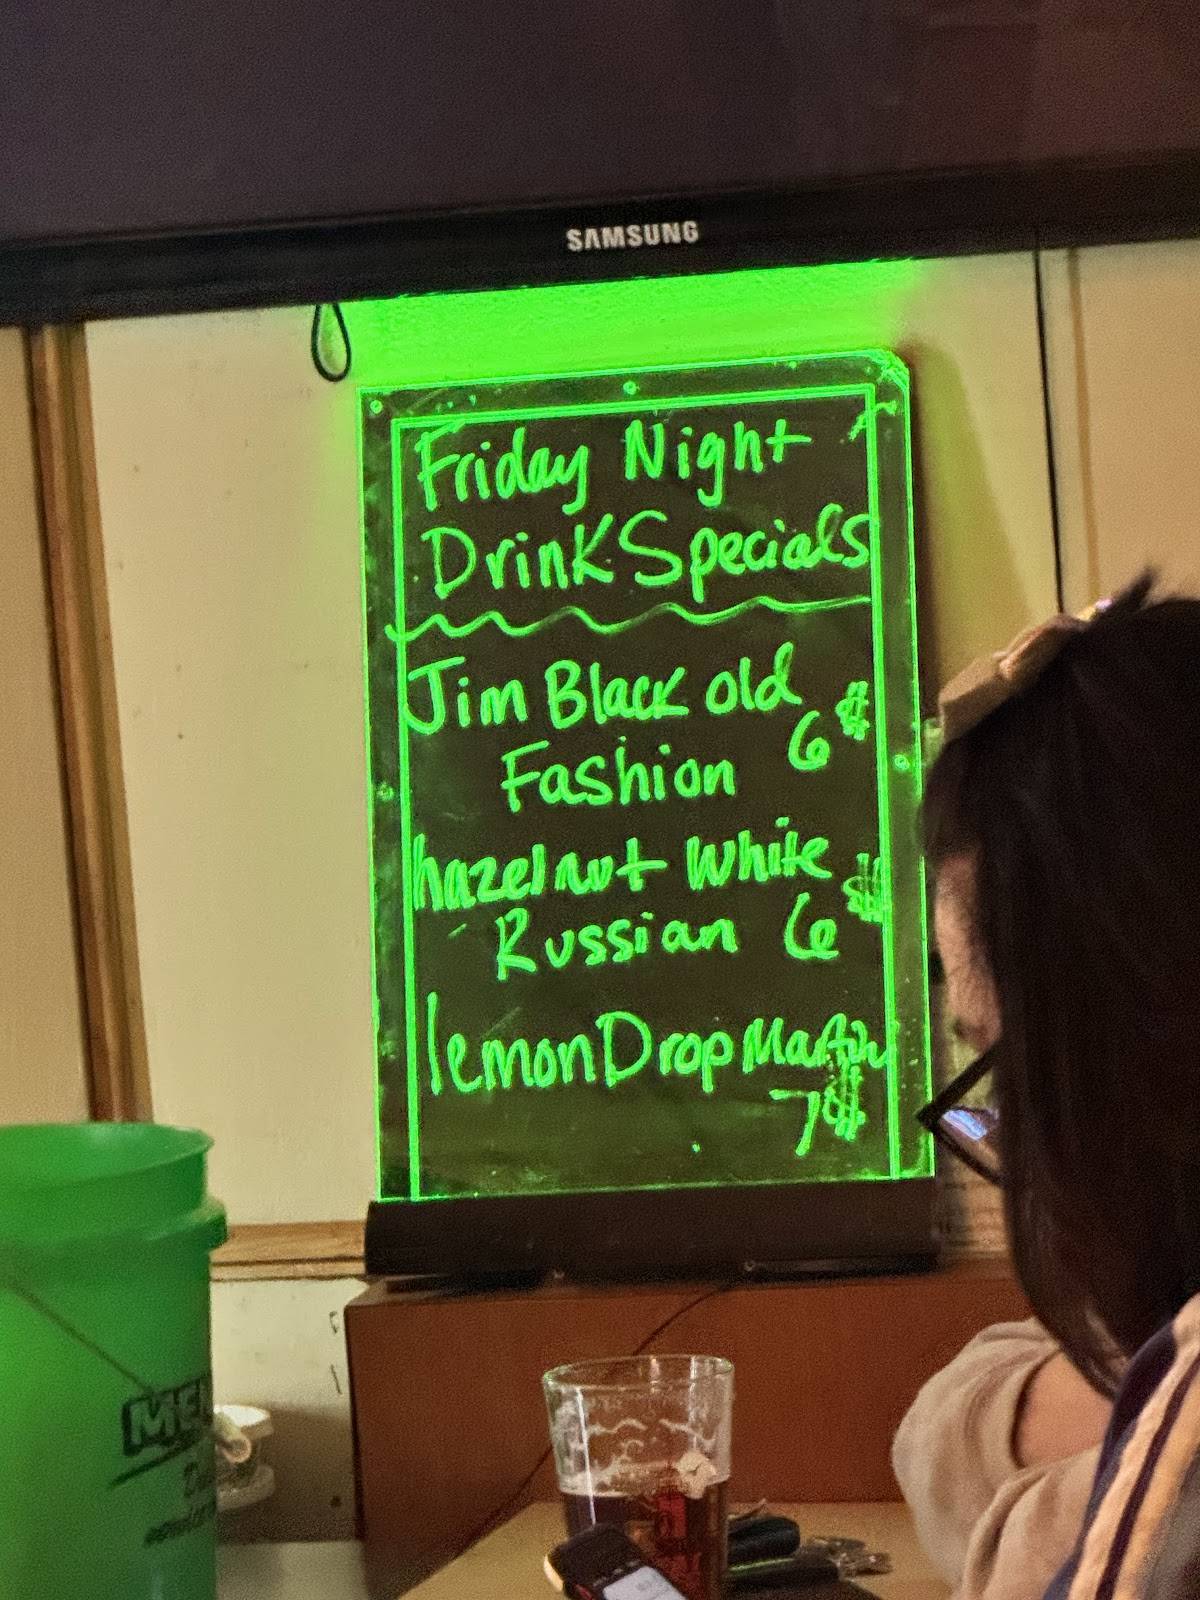 SAMSUNG
Friday Night
Drink Specials
Jim Black old
Fashion 6$
hazelnut White
Russian 6$
lemon Drop Martini
7$